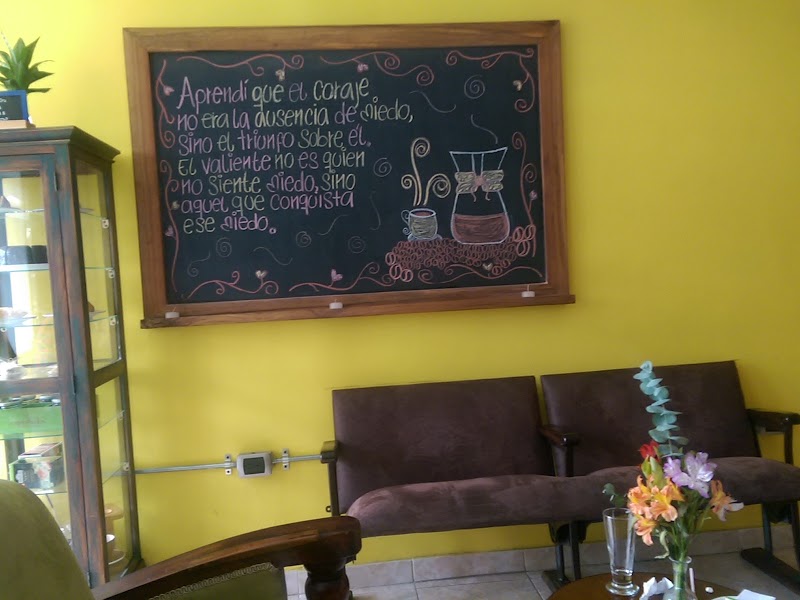 Aprendí que el coraje
no era la ausencia de miedo,
sino el triunfo sobre él.
El valiente no es quien
no siente miedo, sino
aquel que conquista
ese miedo.